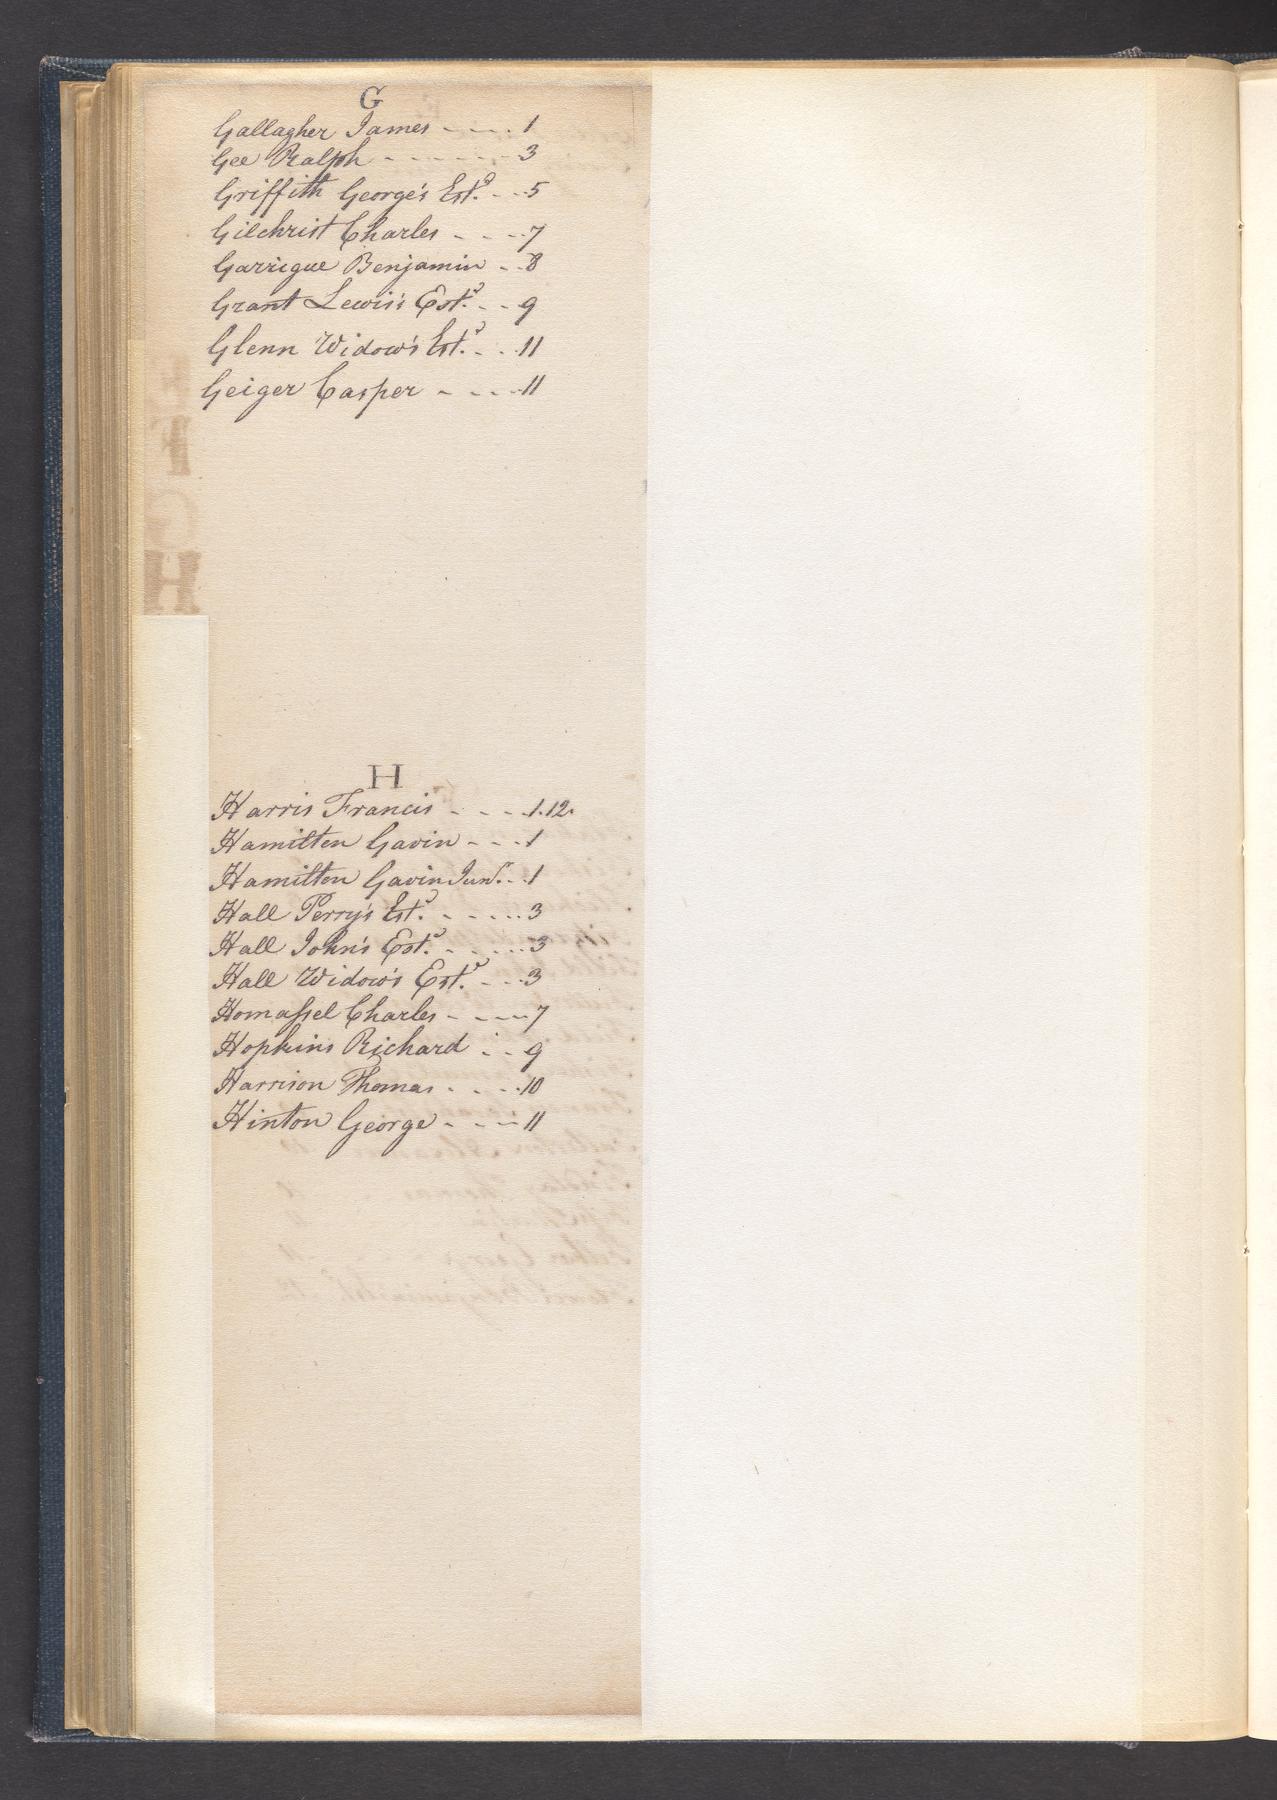 G
Gallagher James - - - - 1
Gee Ralph - - - - - - 3
Griffith George's Estd. - - - 5
Gilchrist Charles - - - - 7
Garrigue Benjamin - - - 8
Grant Lewis's Estd. - - - 9
Glenn Widow's Estd. - - - 11
Geiger Casper - - - - 11
H
Harris Francis - - - - 1.12.
Hamilton Gavin - - - 1
Hamilton Gavin Junr. - - 1
Hall Perry's Estd. - - - - - 3
Hall John's Estd. - - - - - 3
Hall Widow's Estd. - - - 3
Homaſsel Charles - - - - 7
Hopkins Richard - - - 9
Harrison Thomas - - - - 10
Hinton George - - - - 11
F
G
H